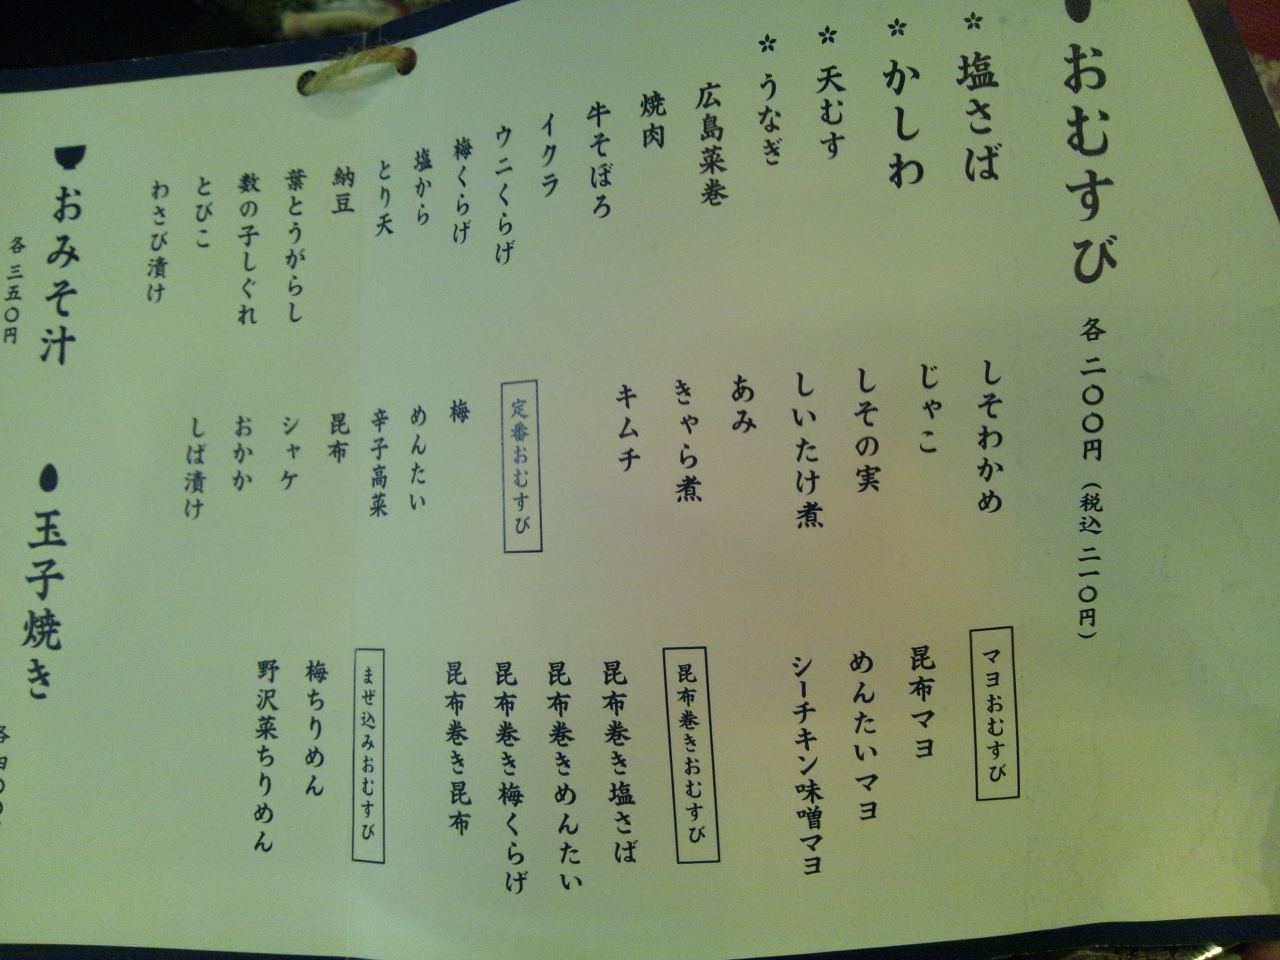 おむすび 各 二〇〇円 (税込 二一〇円)
＊ 塩さば
＊ かしわ
＊ 天むす
＊ うなぎ
広島菜巻
焼肉
牛そぼろ
イクラ
ウニくらげ
梅くらげ
塩から
とり天
納豆
葉とうがらし
数の子しぐれ
とびこ
わさび漬け
しそわかめ
じゃこ
しその実
しいたけ煮
あみ
きゃら煮
キムチ
定番おむすび
梅
めんたい
辛子高菜
昆布
シャケ
おかか
しば漬け
マヨおむすび
昆布マヨ
めんたいマヨ
シーチキン味噌マヨ
昆布巻きおむすび
昆布巻き塩さば
昆布巻きめんたい
昆布巻き梅くらげ
昆布巻き昆布
まぜ込みおむすび
梅ちりめん
野沢菜ちりめん
おみそ汁
各 三五〇円
玉子焼き